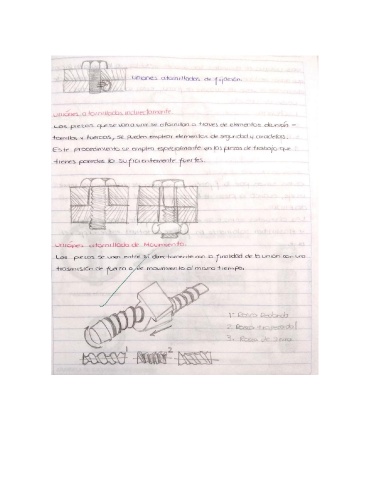 Uniones atornilladas de fijación
Uniones atornilladas indirectamente
Las piezas que se van a unir se atornillan a traves de elementos de unión =
tornillos y tuercas, se pueden emplear elementos de seguridad y arandelas.
Este procedimiento se emplea especialmente en las piezas de trabajo que
tienen paredes lo suficientemente fuertes.
Uniones atornillada de Movimiento
Las piezas se unen entre sí directamente con la finalidad de la unión con una
trasmisión de fuerza o de movimiento al mismo tiempo.
1- Rosca Redonda
2- Rosca
3- Rosca de
1 2